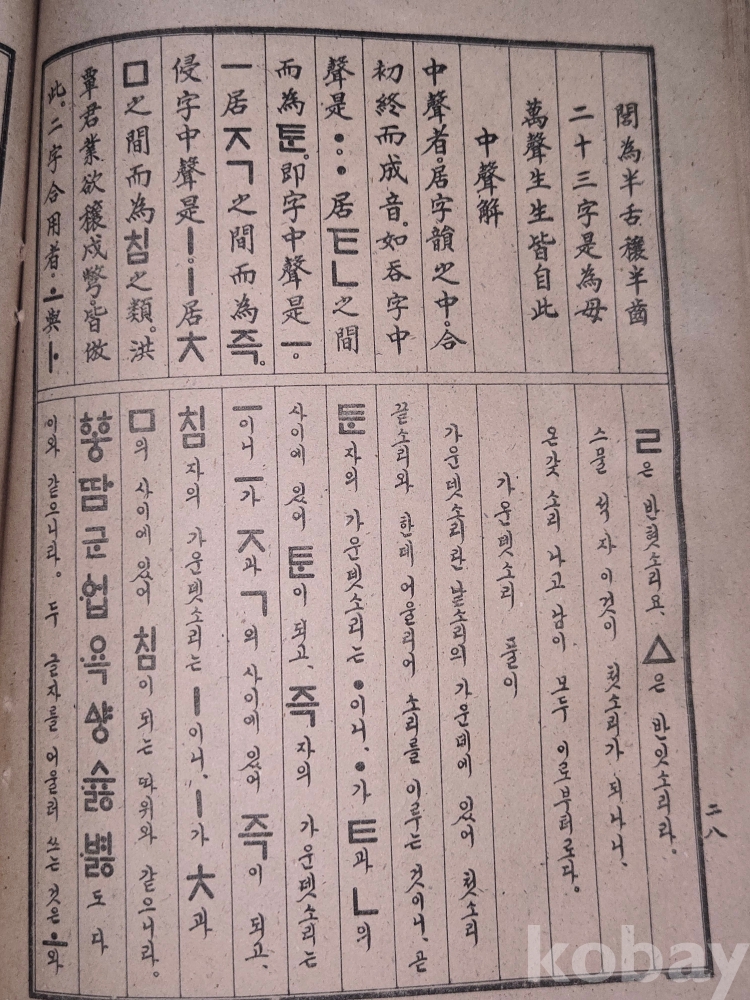 閭為半舌穰半齒
二十三字是為母
萬聲生生皆自此
中聲解
中聲者。居字韻之中。合
初終而成音。如呑字中
聲是ㆍ。ㆍ居ㅌㄴ之間
而為ᄐᆞᆫ。即字中聲是ㅡ。
ㅡ居ㅈㄱ之間而為즉。
侵字中聲是ㅣ。ㅣ居ㅊ
ㅁ之間而為침之類。洪
覃君業欲穰戌彆。皆倣
此。二字合用者。ㅗ與ㅏ
ㄹ은 반혓소리요, ㅿ은 반잇소리라。
스물 석 자 이것이 첫소리가 되나니,
온갖 소리 나고 남이 모두 이로부터로다。
가운뎃소리 풀이
가운뎃소리란 낱소리의 가운데에 있어 첫소리
끝소리와 한데 어울리어 소리를 이루는 것이니, 곧
ᄐᆞᆫ자의 가운뎃소리는 ㆍ이니, ㆍ가 ㅌ과 ㄴ의
사이에 있어 ᄐᆞᆫ이 되고, 즉 자의 가운뎃소리는
ㅡ이니 ㅡ가 ㅈ과 ㄱ의 사이에 있어 즉이 되고,
침 자의 가운뎃소리는 ㅣ이니, ㅣ가 ㅊ과
ㅁ의 사이에 있어 침이 되는 따위와 같으니라。
ᅘᅩᇰ 땀 군 업 욕 ᅀᅣᇰ 슗 볋도 다
이와 같으니라。 두 글자를 어울러 쓰는 것은 ㅗ와
二八
kobay